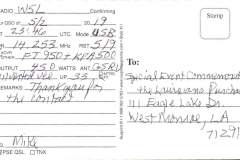 RADIO W5L Confirming
QSO of 5/2 2019
at 23:46 UTC. Mode USB
on 14.253 MHz RST 519
FT950 + KPA500
Output 450 WATTS ANT. G5RV
33
REMARKS Thank you for
the contact
Mike
PSE QSL TNX
Stamp
To:
Special Event Commemorating
the Louisiana Purchase
111 Eagle Lake Dr.
West Monroe, LA
71291